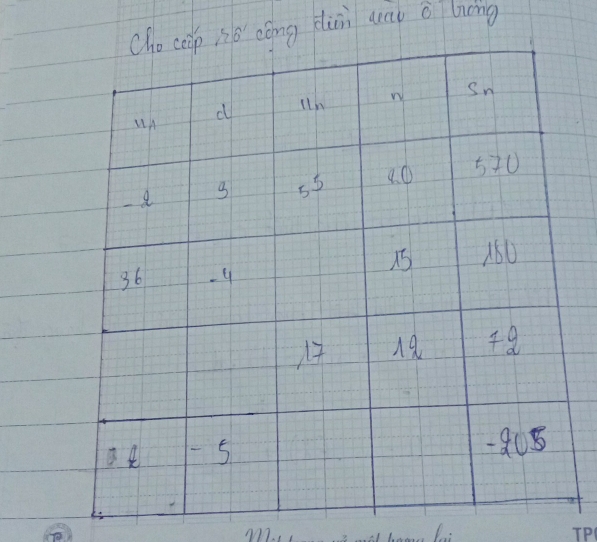 Cho cấp số cộng điền vào ô trống
u1 d un n Sn
-2 3 55 20 530
36 -4 15 180
17 12 72
2 -5 -205
TP